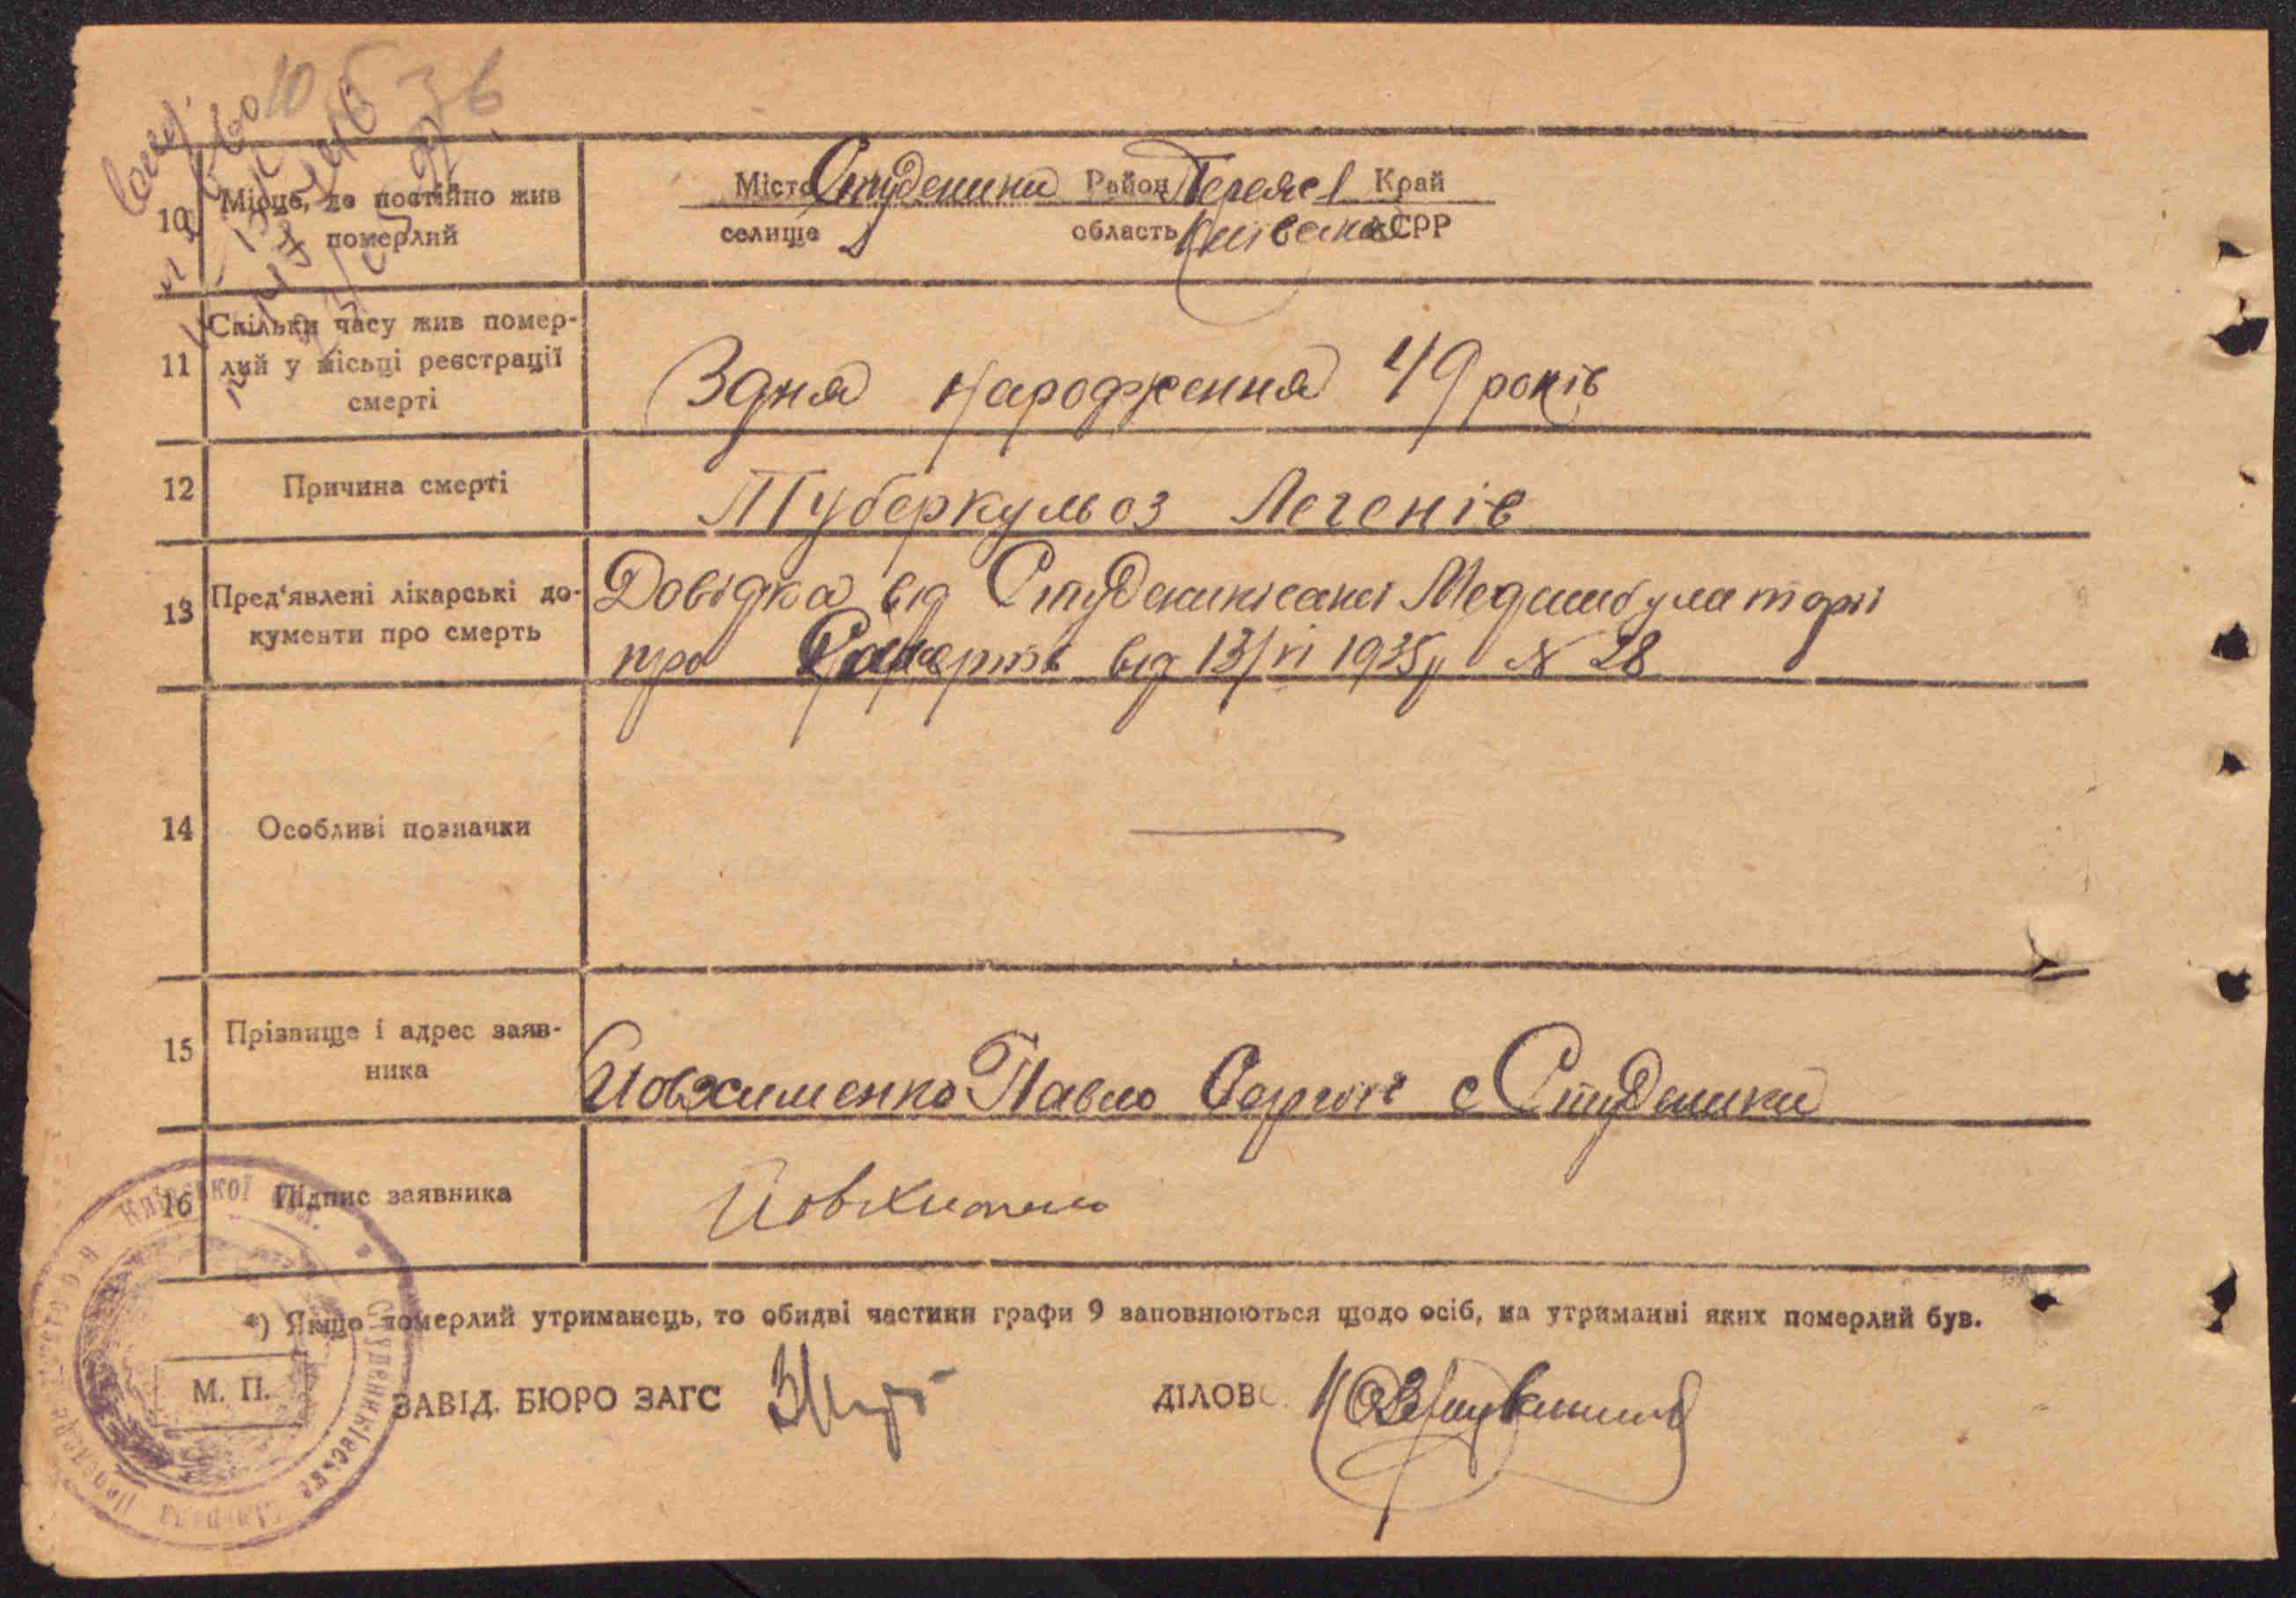 10 Місце, де постійно жив
померлий
Місто Студеники Район Переясл Край
селище область Київська АСРР
11 Скільки часу жив помер-
лий у місьці реєстрації
смерті
З дня народження 49 років
12 Причина смерті
Туберкульоз Легенів
13 Пред'явлені лікарські до-
кументи про смерть
Довідка від Студениківскої Медамбулаторії
про Смерть від 13/VI 1935р N 28
14 Особливі позначки —
15 Прізвище і адрес заяв-
ника
Йовхименко Павло с Студеники
16 Підпис заявника
Йовхименко
*) Якщо померлий утриманець, то обидві частини графи 9 заповнюються щодо осіб, на утриманні яких померлий був.
М. П.
ЗАВІД. БЮРО ЗАГС
ДІЛОВ
Київської
Студениківське